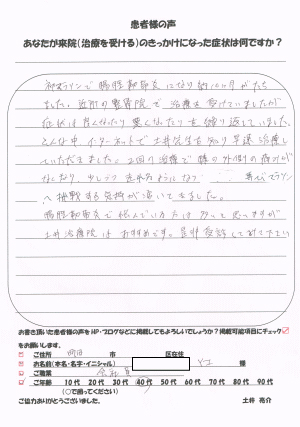 患者様の声
あなたが来院(治療を受ける)のきっかけになった症状は何ですか?
初マラソンで腸脛靭帯炎になり約10ヶ月がたち
ました。近所の整骨院で治療を受けていましたが
症状は良くなったり悪くなったりを繰り返していました。
そんな中、インターネットで土井先生を知り早速治療して
いただきました。2回の治療で膝の外側の痛みが
なくなり、少しづつ走れるようになり 再びマラソン
へ挑戦する気持が湧いてきました。
腸脛靭帯炎で悩んでいる方は多いと思いますが
土井治療院はおすすめです。是非受診してみて下さい
お書き頂いた患者様の声をHP・ブログなどに掲載してもよろしいでしょうか?掲載可能項目にチェック
をお願いします。
ご住所 町田 市 区在住
お名前(本名・名字・イニシャル) 様
ご職業 会社員
ご年齢 10代 20代 30代 40代 50代 60代 70代 80代 90代
(○で囲ってください)
ご協力ありがとうございました。 土井 亮介